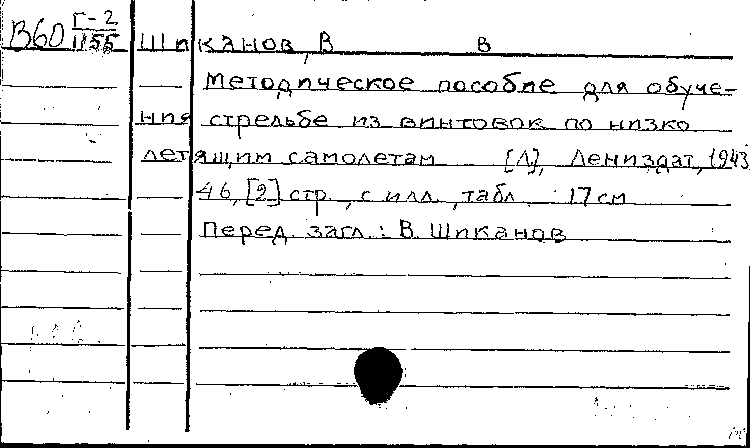 В60 Г-2
1155
Шиканов, В В
Методическое пособие для обуче-
ния стрельбе из винтовок по низко
летящим самолетам [Л], Лениздат, 1943
46, [2] стр., с илл., табл. 17 см
Перед загл.: В. Шиканов